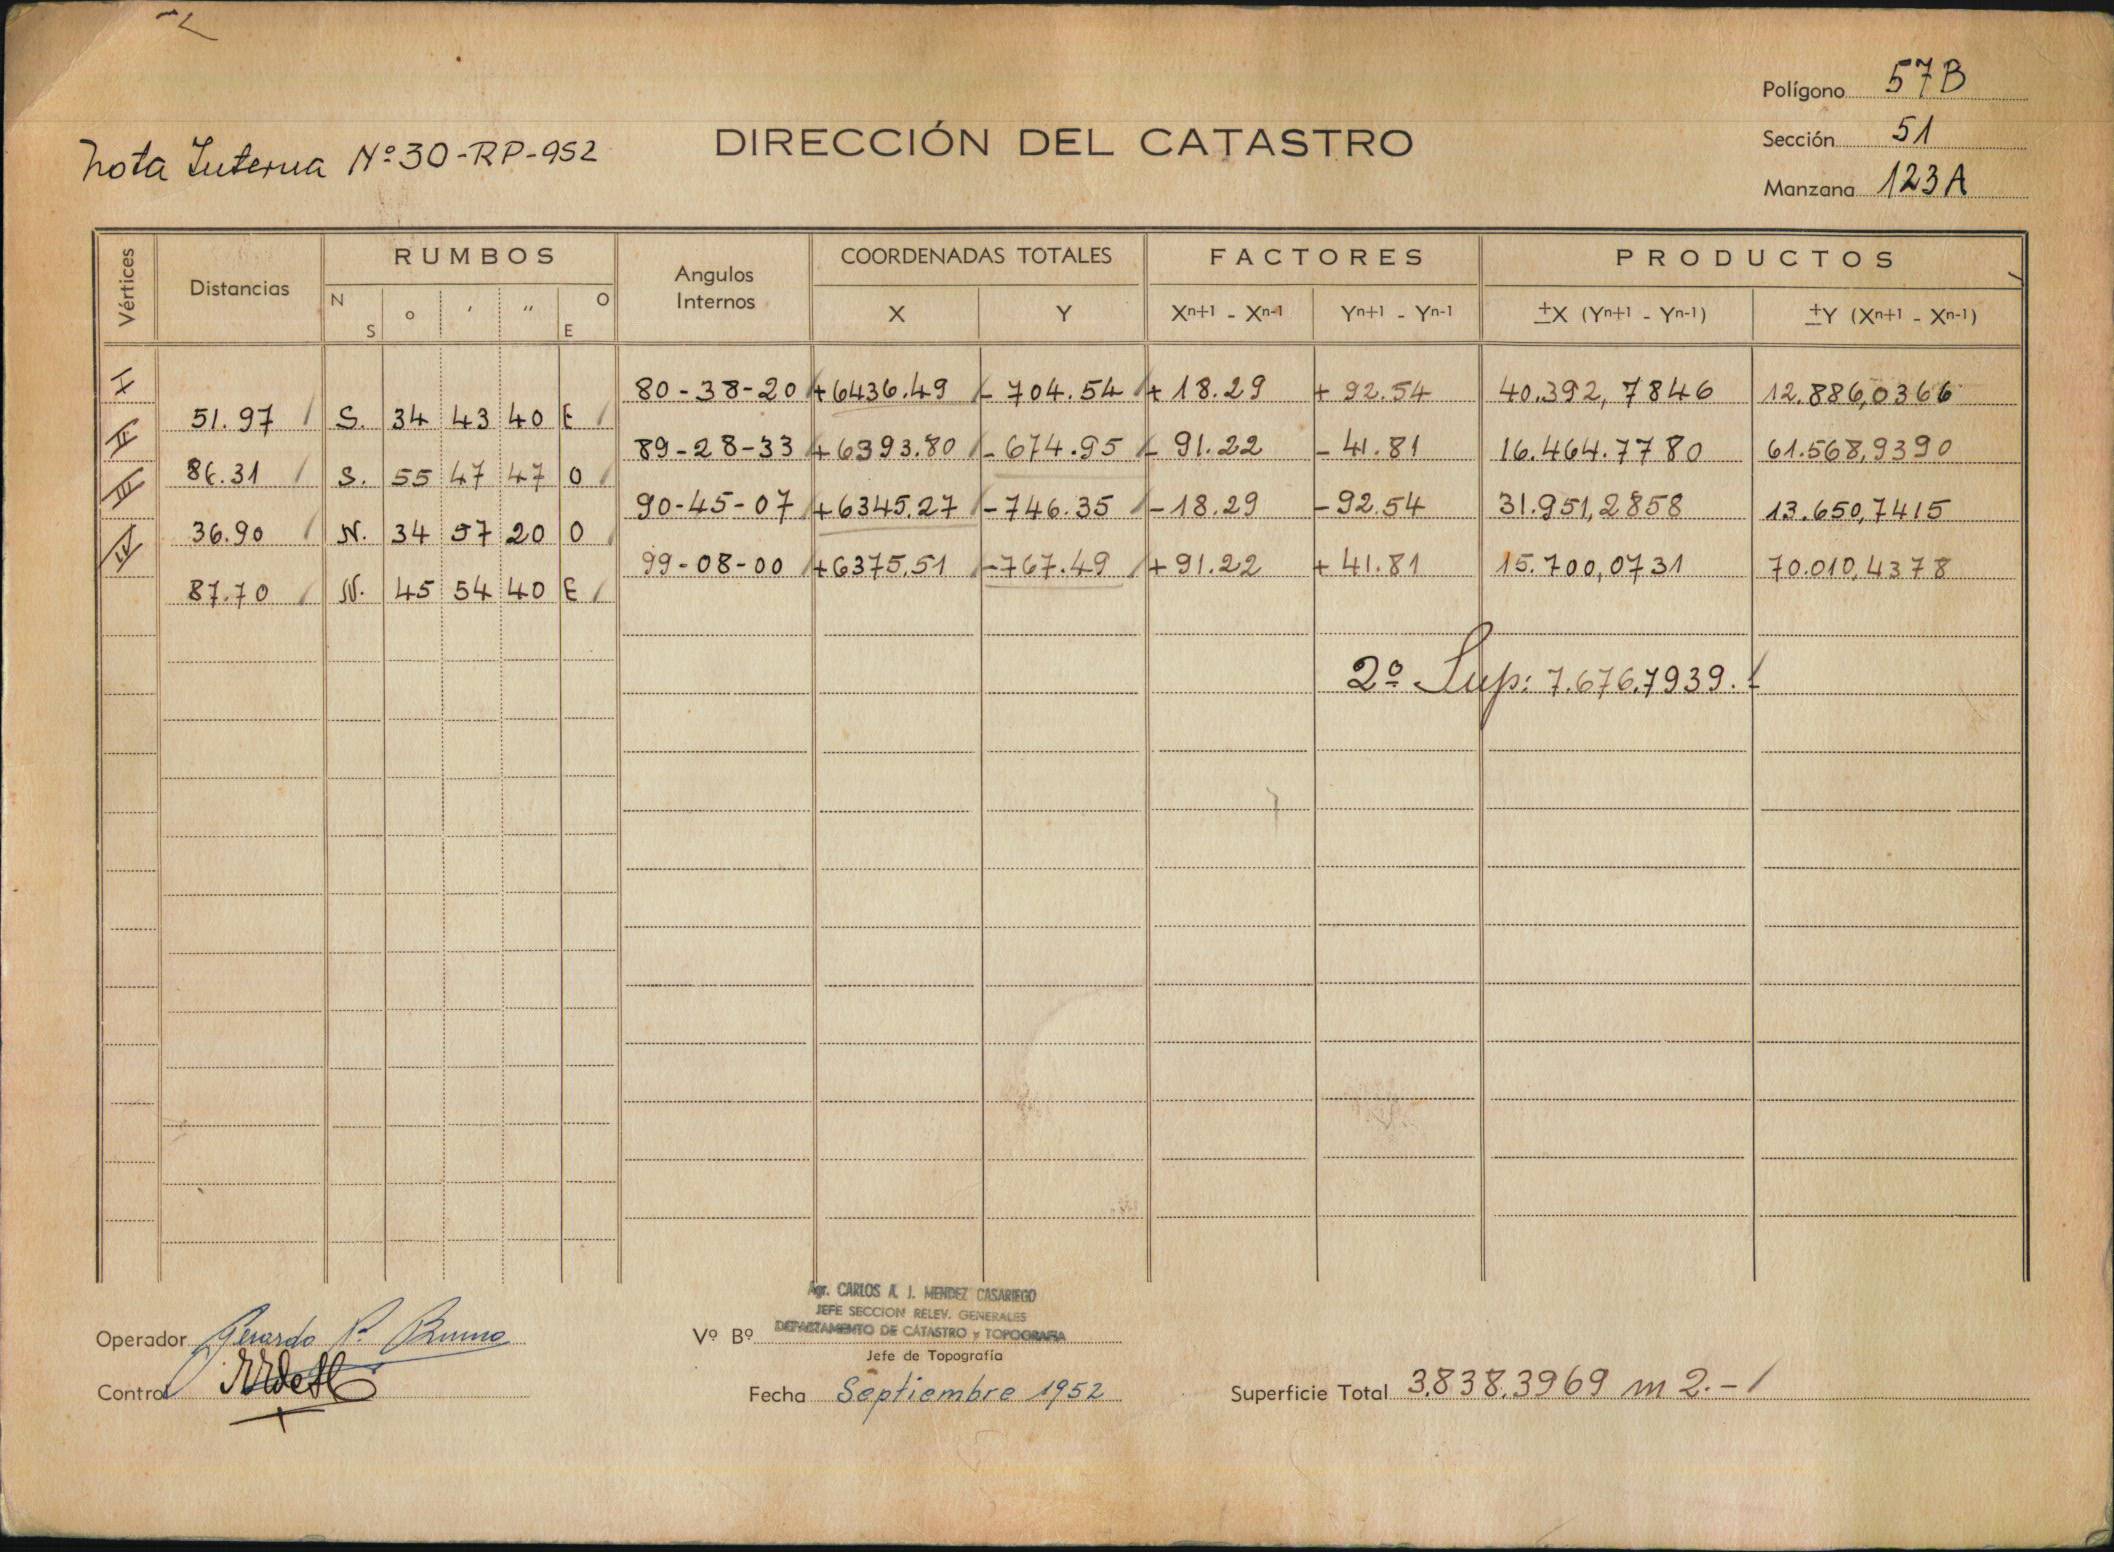 Polígono 57B
Nota Interna Nº 30-RP-952 DIRECCIÓN DEL CATASTRO Sección 51
Manzana 123A
Vértices Distancias RUMBOS Angulos Internos COORDENADAS TOTALES FACTORES PRODUCTOS
N S ° ' '' O E X Y Xn+1 - Xn-1 Yn+1 - Yn-1 ±X (Yn+1 - Yn-1) ±Y (Xn+1 - Xn-1)
I 80-38-20 +6436.49 - 704.54 + 18.29 + 92.54 40.392,7846 12.886,0366
51.97 S. 34 43 40 E
II 89-28-33 +6393.80 - 674.95 - 91.22 - 41.81 16.464.7780 61.568,9390
86.31 S. 55 47 47 O
III 90-45-07 +6345.27 -746.35 -18.29 -92.54 31.951,2858 13.650,7415
36.90 N. 34 57 20 O
IV 99-08-00 +6375.51 -767.49 +91.22 +41.81 15.700,0731 70.010,4378
87.70 N. 45 54 40 E
2º Sup: 7.676.7939.
Agr. CARLOS A. J. MENDEZ CASARIEGO
JEFE SECCION RELEV. GENERALES
DEPARTAMENTO DE CATASTRO y TOPOGRAFIA
Operador Gerardo P. Bruno Vº Bº
Jefe de Topografía
Control Fecha Septiembre 1952 Superficie Total 3.838.3969 m2.-